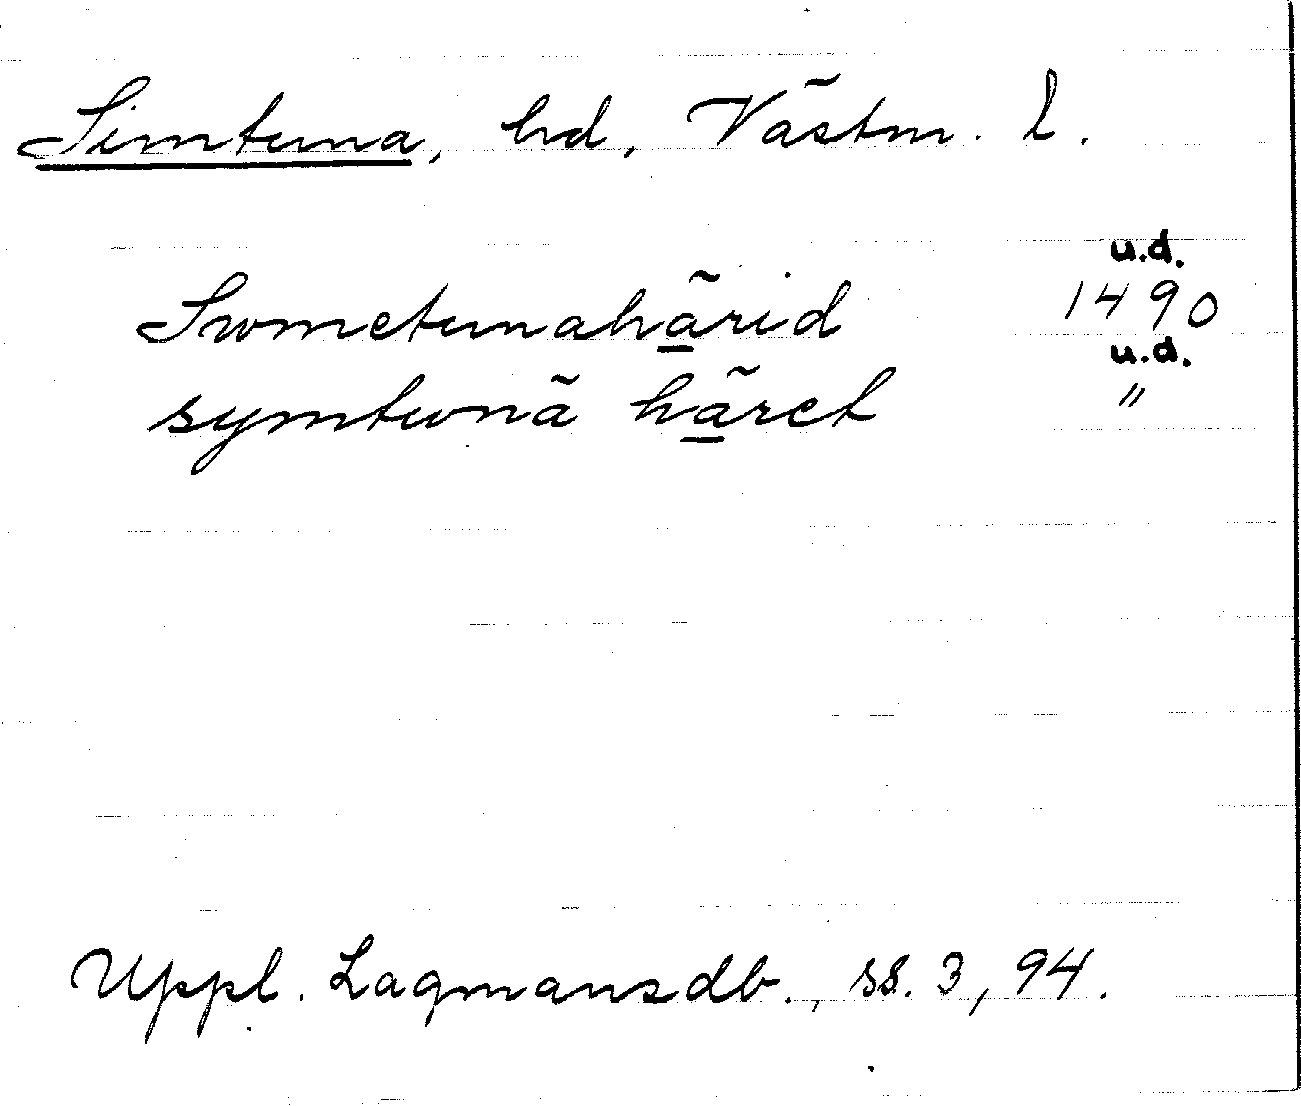 Simtuna, hd, Västm. l.
u.d.
Swmetunahärid 1490
u.d.
symtwnä häret "
Uppl. Lagmansdb., ss. 3, 94.